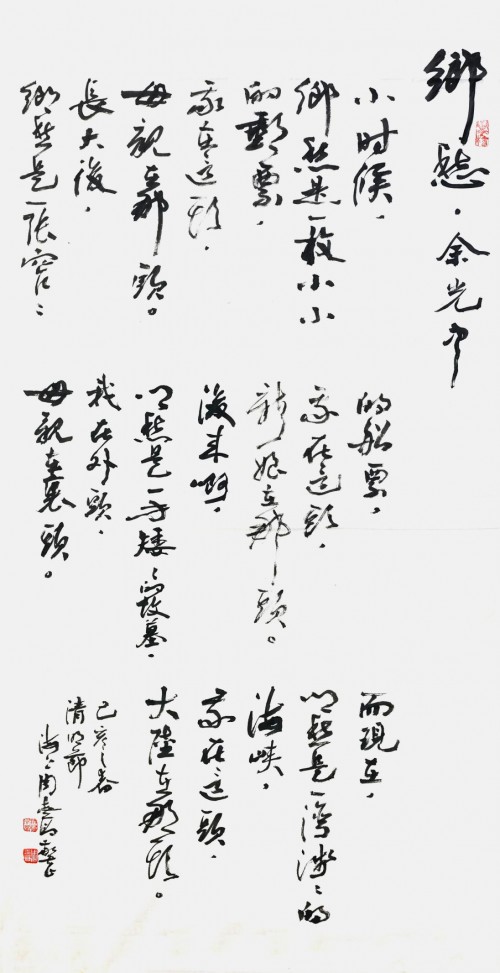 鄉愁，余光中
小时候，
鄉愁是一枚小小
的郵票，
我在這頭，
母親在那頭。
長大後，
鄉愁是一張窄〻
的船票，
我在這頭，
新娘在那頭。
後来啊，
鄉愁是一方矮〻的墳墓，
我在外頭，
母親在裏頭。
而現在，
鄉愁是一灣淺〻的
海峽，
我在這頭，
大陸在那頭。
己亥之春
清明節
海上周